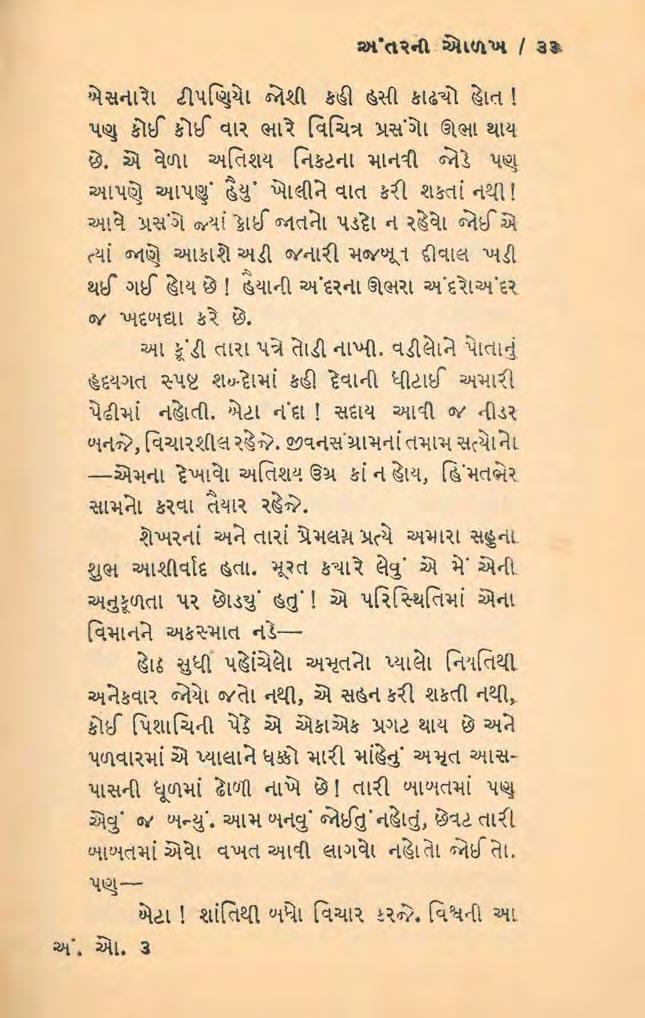 અંતરની ઓળખ / ૩૩
બેસનારો ટીપણિયો જોશી કહી હસી કાઢ્યો હોત !
પણ કોઈ કોઈ વાર ભારે વિચિત્ર પ્રસંગો ઊભા થાય
છે. એ વેળા અતિશય નિકટના માનવી જોડે પણ
આપણે આપણું હૈયું ખોલીને વાત કરી શકતાં નથી !
આવે પ્રસંગે જ્યાં કોઈ જાતનો પડદો ન રહેવો જોઈએ
ત્યાં જાણે આકાશે અડી જનારી મજબૂત દીવાલ ખડી
થઈ ગઈ હોય છે ! હૈયાની અંદરના ઊભરા અંદરોઅંદર
જ ખદબદ્યા કરે છે.
આ કૂંડી તારા પત્રે તોડી નાખી. વડીલોને પોતાનું
હૃદયગત સ્પષ્ટ શબ્દોમાં કહી દેવાની ધીટાઈ અમારી
પેઢીમાં નહોતી. બેટા નંદા ! સદાય આવી જ નીડર
બનજે, વિચારશીલ રહેજે. જીવનસંગ્રામનાં તમામ સત્યોનો
—એમના દેખાવો અતિશય ઉગ્ર કાં ન હોય, હિંમતભેર
સામનો કરવા તૈયાર રહેજે.
શેખરનાં અને તારાં પ્રેમલગ્ન પ્રત્યે અમારા સહુના
શુભ આશીર્વાદ હતા. મૂરત ક્યારે લેવું એ મેં એની
અનુકૂળતા પર છોડયું હતું ! એ પરિસ્થિતિમાં એના
વિમાનને અકસ્માત નડે—
હોઠ સુધી પહોંચેલો અમૃતનો પ્યાલો નિયતિથી
અનેકવાર જોયો જતો નથી, એ સહન કરી શકતી નથી,
કોઈ પિશાચિની પેઠે એ એકાએક પ્રગટ થાય છે અને
પળવારમાં એ પ્યાલાને ધક્કો મારી માંહેનું અમૃત આસ-
પાસની ધૂળમાં ઢોળી નાખે છે ! તારી બાબતમાં પણ
એવું જ બન્યું. આમ બનવું જોઈતું નહોતું, છેવટ તારી
બાબતમાં એવો વખત આવી લાગવો નહોતો જોઈતો.
પણ—
બેટા ! શાંતિથી બધો વિચાર કરજે. વિશ્વની આ
અં. ઓ. ૩